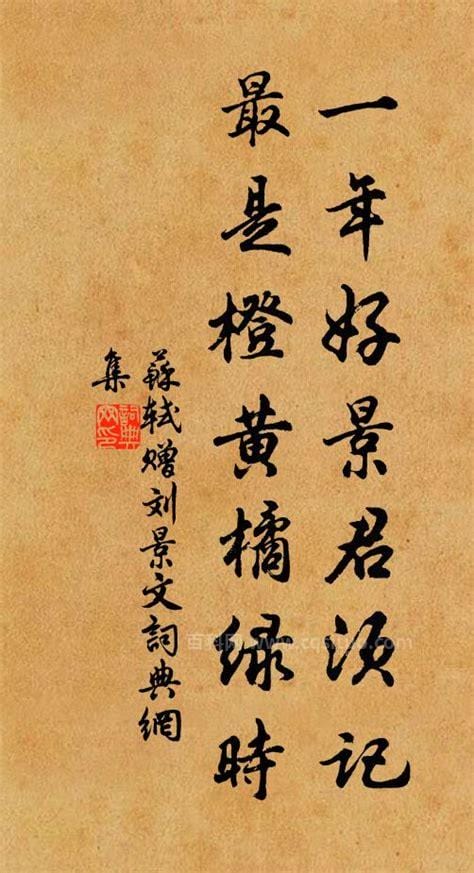 一年好景君须记
最是橙黄橘绿時
蘇轼赠刘景文詞典網
集
詞典網印
百科网 www.cqs